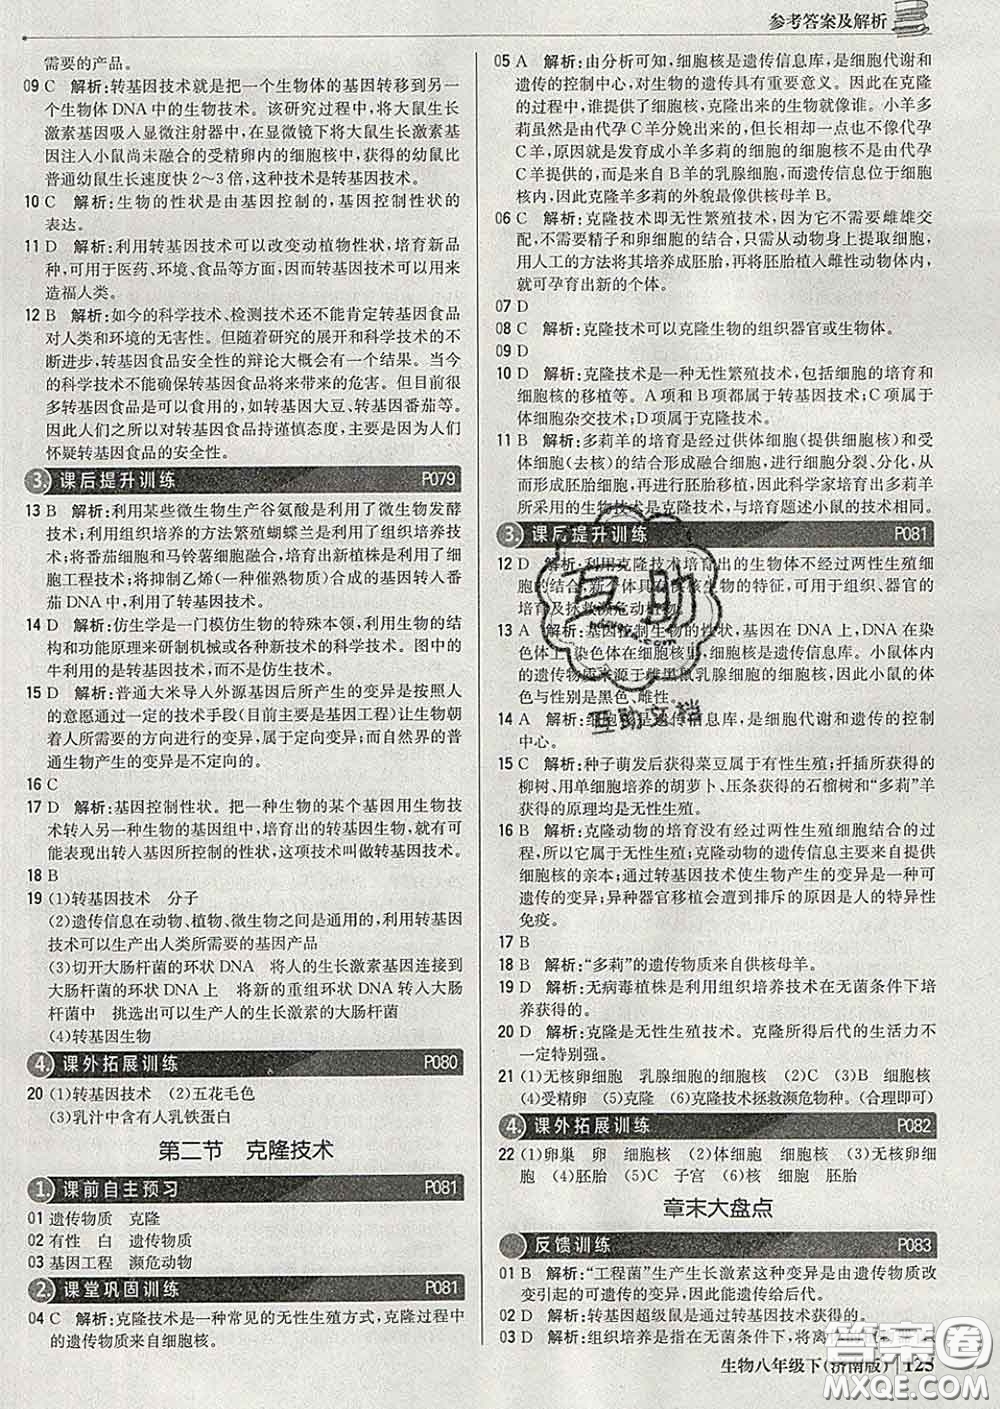 参考答案及解析
需要的产品。
09 C 解析:转基因技术就是把一个生物体的基因转移到另一
个生物体 DNA 中的生物技术。该研究过程中,将大鼠生长
激素基因吸入显微注射器中,在显微镜下将大鼠生长激素
基因注入小鼠尚未融合的受精卵内的细胞核中,获得的幼鼠比
普通幼鼠生长速度快 2～3 倍,这种技术是转基因技术。
10 C 解析:生物的性状是由基因控制的,基因控制性状的
表达。
11 D 解析:利用转基因技术可以改变动植物性状,培育新品
种,可用于医药、环境、食品等方面,因而转基因技术可以用来
造福人类。
12 B 解析:如今的科学技术、检测技术还不能肯定转基因食品
对人类和环境的无害性。但随着研究的展开和科学技术的不
断进步,转基因食品安全性的辩论大概会有一个结果。当今
的科学技术不能确保转基因食品将来带来的危害。但目前很
多转基因食品是可以食用的,如转基因大豆、转基因番茄等。
因此人们之所以对转基因食品持谨慎态度,主要是因为人们
怀疑转基因食品的安全性。
3. 课后提升训练 P079
13 B 解析:利用某些微生物生产谷氨酸是利用了微生物发酵
技术;利用组织培养的方法繁殖蝴蝶兰利用了组织培养技
术;将番茄细胞和马铃薯细胞融合,培育出新植株是利用了细
胞工程技术;将抑制乙烯(一种催熟物质)合成的基因转入番
茄 DNA 中,利用了转基因技术。
14 D 解析:仿生学是一门模仿生物的特殊本领,利用生物的
结构和功能原理来研制机械或各种新技术的科学技术。图中的
牛利用的是转基因技术,而不是仿生技术。
15 D 解析:普通大米导入外源基因后所产生的变异是按照人
的意愿通过一定的技术手段(目前主要是基因工程)让生物朝
着人们需要的方向进行的变异,属于定向变异;而自然界的普
通生物产生的变异是不定向的。
16 C
17 D 解析:基因控制性状。把一种生物的某个基因用生物技
术转入另一种生物的基因组中,培育出的转基因生物,就有可
能表现出转入基因所控制的性状,这项技术叫做转基因技术。
18 B
19 (1)转基因技术 分子
(2)遗传信息在动物、植物、微生物之间是通用的,利用转基因
技术可以生产出人类所需要的基因产品
(3)切开大肠杆菌的环状 DNA 将人的生长激素基因连接到
大肠杆菌的环状 DNA 上 将新的重组环状 DNA 转入大肠
杆菌中 挑选出可以生产人的生长激素的大肠杆菌
(4)转基因生物
4. 课外拓展训练 P080
20 (1)转基因技术 (2)五花毛色
(3)乳汁中含有人乳铁蛋白
第二节 克隆技术
1. 课前自主预习 P081
01 遗传物质 克隆
02 有性 白 遗传物质
03 基因工程 濒危动物
2. 课堂巩固训练 P081
04 C 解析:克隆技术是一种常见的无性生殖方式,克隆过程中
的遗传物质来自细胞核。
05 A 解析:由分析可知,细胞核是遗传信息库,是细胞代谢和
遗传的控制中心,对生物的遗传具有重要意义。因此在克隆
的过程中,谁提供了细胞核,克隆出来的生物就像谁。小羊多
莉虽然是由代孕 C 羊分娩出来的,但它一点也不像代孕
C 羊,原因就是发育成小羊多莉的细胞的细胞核不是代孕 C 羊
提供的,而是来自 B 羊的乳腺细胞,而遗传信息位于细胞
内,因此克隆羊多莉的外貌最像供核母羊 B。
06 C 解析:克隆技术即无性繁殖技术,因为它不需要雌雄交
配,不需要精子和卵细胞的结合,只需从动物身上提取细胞,
用人工的方法将其培养成胚胎,再将胚胎植入雌性动物体内,
就可孕育出新的个体。
07 D
08 C 解析:克隆技术可以克隆生物的组织器官或生物体。
09 D
10 D 解析:克隆技术是一种无性繁殖技术,包括细胞的培育和
细胞核的移植等。A 项和 B 项都属于转基因技术;C 项属于
体细胞杂交技术;D 项属于克隆技术。
11 B 解析:多莉羊的培育是经过供体细胞(提供细胞核)和受
体细胞(去核)的结合形成融合细胞,进行细胞分裂、分化,从
而形成胚胎,再进行胚胎移植而成,因此科学家培育多莉羊
所采用的生物技术与培育题述小鼠的技术相同。
3. 课后提升训练 P081
12 D 解析:利用克隆技术培育出的生物体不经过两性生殖细
胞的结合,新个体具有供核生物的特征,可用于组织、器官的
培育及拯救濒危动植物。
13 A 解析:基因控制生物的性状,基因在 DNA 上,DNA 在染
色体上,染色体在细胞核里,细胞核是遗传的中心。小鼠体内
的遗传物质来源于雌黑鼠乳腺细胞的细胞核,因此小鼠的体
色与性别是黑色、雌性。
14 A 解析:细胞核是遗传信息库,是细胞代谢和遗传的控制
中心。
15 C 解析:种子萌发后获得菜豆属于有性生殖;扦插所获得的
柳树、用单细胞培养的胡萝卜、压条获得的石榴树和“多莉”羊
获得的原理均是无性生殖。
16 B 解析:克隆动物的培育没有经过两性生殖细胞结合的过
程,所以它属于无性生殖;克隆动物的遗传信息主要来自提供
细胞核的亲本;通过转基因技术使生物产生的变异是一种可
遗传的变异;异种器官移植会遭到排斥的原因是人的特异性
免疫。
17 B
18 B 解析:“多莉”的遗传物质来自供核母羊。
19 D 解析:无病毒植株是利用组织培养技术在无菌条件下培
养获得的。
20 D 解析:克隆是无性生殖技术。克隆所得后代的生活力不
一定特别强。
21 (1)无核卵细胞 乳腺细胞的细胞核 (2)C (3)B
(4)受精卵 (5)克隆 (6)克隆技术拯救濒危物种。(合理即可)
4. 课外拓展训练 P082
22 (1)卵巢 卵 细胞核 (2)体细胞 细胞核 (3)细胞
(4)胚胎 (5)C 子宫 (6)C 细胞核 胚胎
章末大盘点
反馈训练 P083
01 B 解析:“工程菌”生产生长激素这种变异是由遗传物质改
变引起的可遗传的变异,因此能遗传给后代。
02 D 解析:转基因超级鼠是通过转基因技术获得的。
03 D 解析:组织培养是指在无菌条件下,将离
生物八年级下(济南版) 125
互助
互助文档
答案圈
MXQE.COM